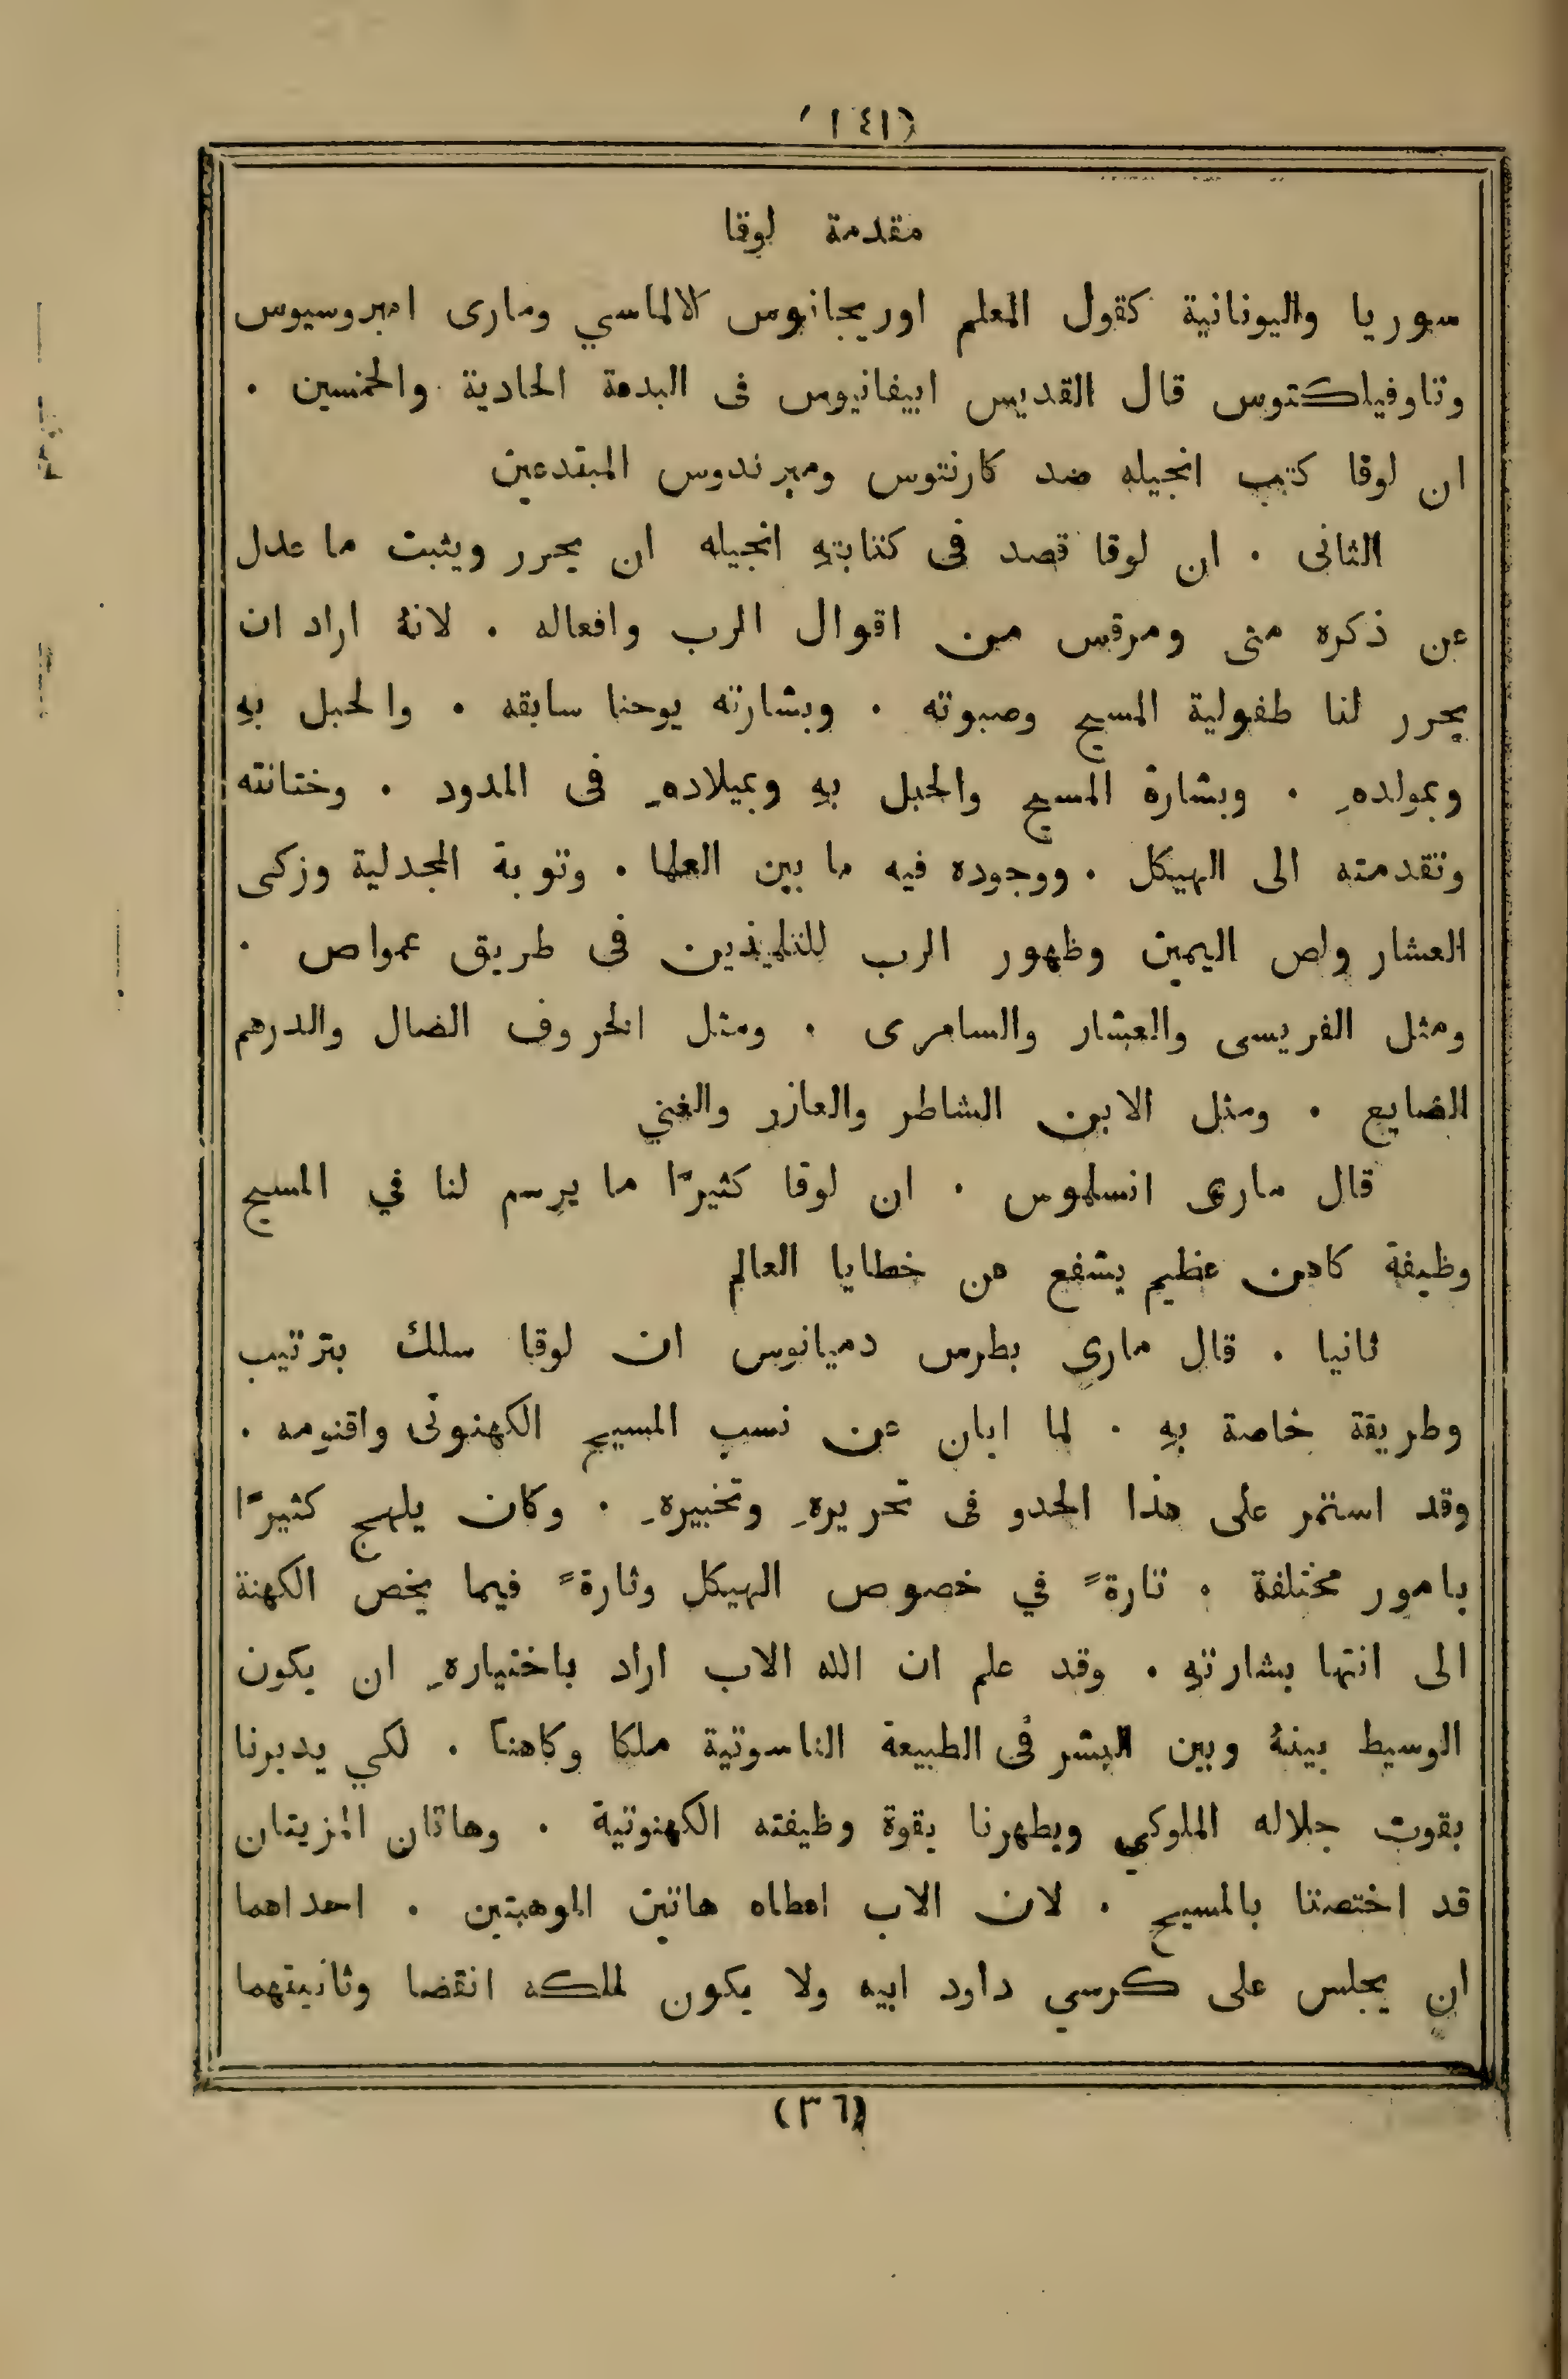 (١٤١)
مقدمة لوقا
سوريا واليونانية كقول المعلم اوريجانوس الالماسي ومارى امبروسيوس
وتاوفيلكتوس قال القديس ابيفانيوس فى البدعة الحادية والخمسين .
ان لوقا كتب انجيله ضد كارنتوس وميرندوس المبتدعين
الثانى . ان لوقا قصد فى كتابتهِ انجيله ان يحرر ويثبت ما عدل
عن ذكره متى ومرقس من اقوال الرب وافعاله . لانهُ اراد ان
يحرر لنا طفولية المسيح وصبوته . وبشارته يوحنا سابقه . والحبل بهِ
وبمولدهِ . وبشارة المسيح والحبل بهِ وبميلادهِ فى المدود . وختانته
وتقدمته الى الهيكل . ووجوده فيه ما بين العلما . وتوبة المجدلية وزكى
العشار ولص اليمين وظهور الرب للتلميذين فى طريق عمواص .
ومثل الفريسى والعشار والسامرى . ومثل الخروف الضال والدرهم
الضايع . ومثل الابن الشاطر والعازر والغني
قال مارى انسلموس . ان لوقا كثيرًا ما يرسم لنا في المسيح
وظيفة كاهن عظيم يشفع عن خطايا العالم
ثانيا . قال مارى بطرس دميانوس ان لوقا سلك بترتيب
وطريقة خاصة بهِ . لما ابان عن نسب المسيح الكهنوتى واقنومه .
وقد استمر على هذا الحدو فى تحريرهِ وتخبيرهِ . وكان يلهج كثيرًا
بامور مختلفة . تارةً في خصوص الهيكل وثارةً فيما يخص الكهنة
الى انتها بشارتهِ . وقد علم ان الله الاب اراد باختيارهِ ان يكون
الوسيط بينهُ وبين البشر فى الطبيعة الناسوتية ملكا وكاهنا . لكي يدبرنا
بقوت جلاله الملوكي ويطهرنا بقوة وظيفته الكهنوتية . وهاتان المزيتان
قد اختصتا بالمسيح . لان الاب اعطاه هاتين الموهبتين . احداهما
ان يجلس على كرسي داود ابيه ولا يكون لملكه انقضا وثانيتهما
(٣٦)